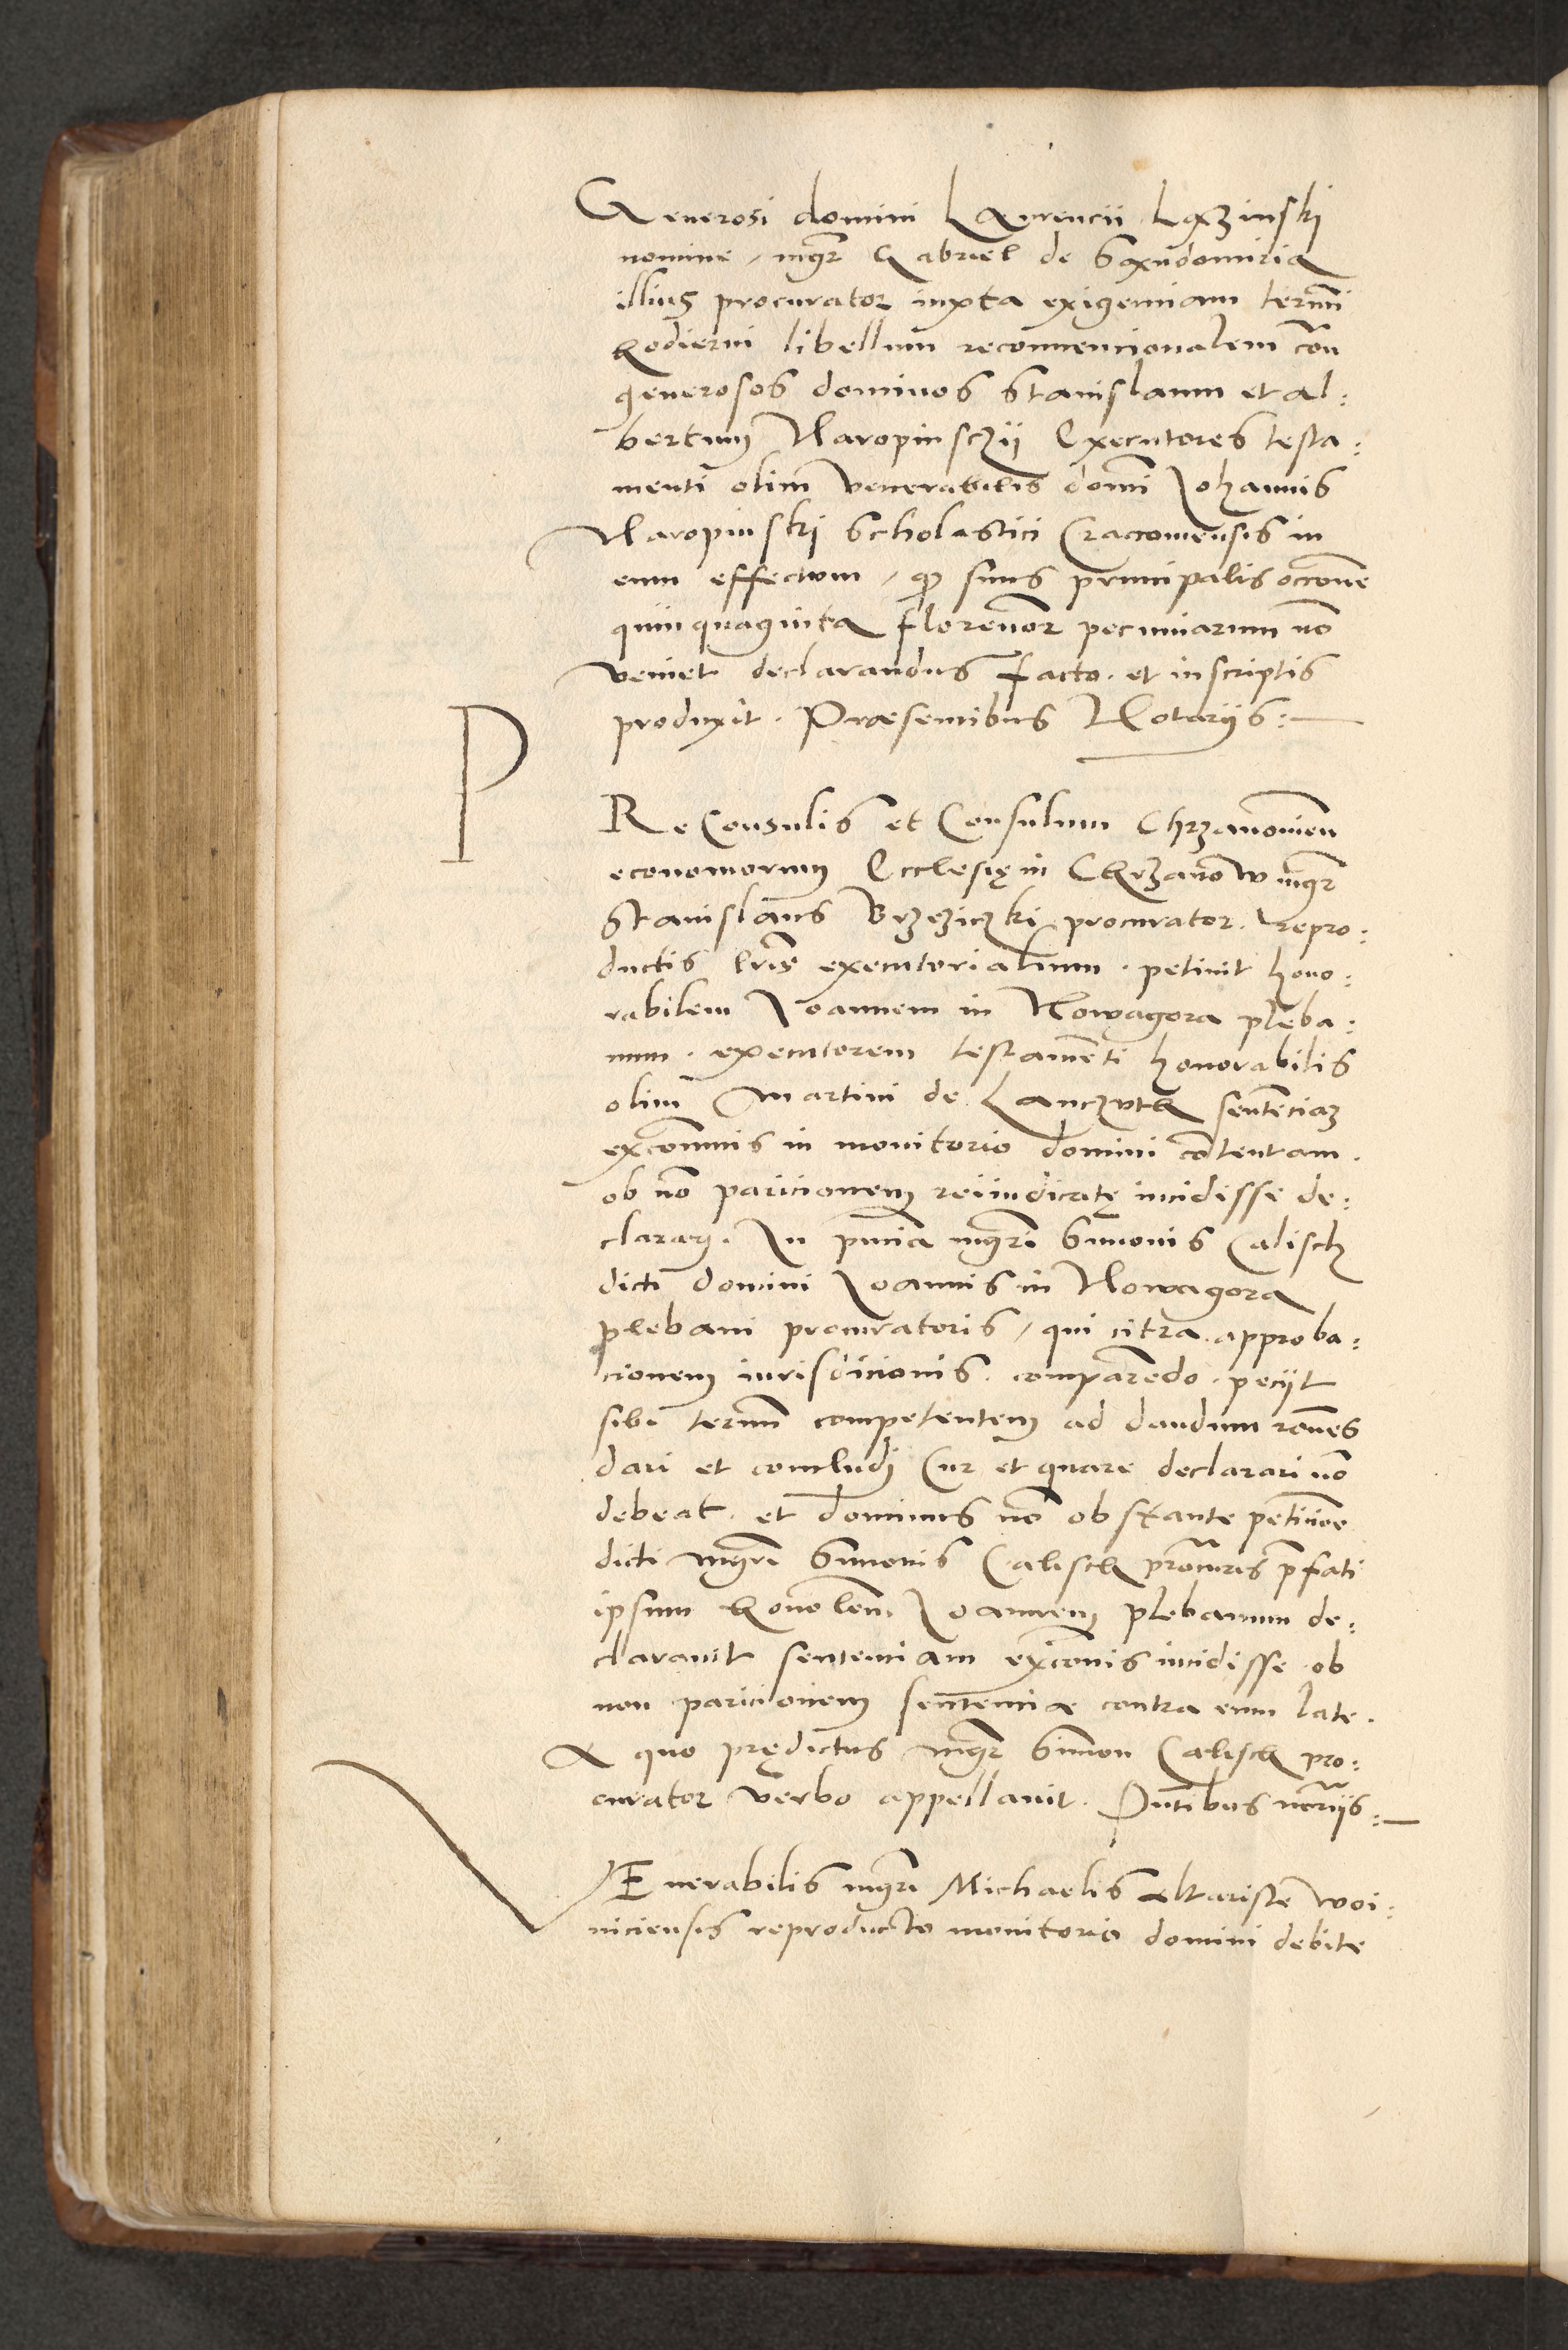 Generosi domini Laurencii Lązinski
nomine, mgr̄ Gabriel de Sąndomiria
illius procurator iuxta exigenciam termī
hodierni libellum reconvencionalem con̄
generosos dominos Stanislaum et al:
bertum Naropinsczii Executores testa:
menti olim venerabilis domī Johannis
Naropinski Scholastici Cracoviensis in
eum effectum, q̄ suus principalis occōne
quinquaginta florenor̄ pecuniarum nō
veniet declarandus facto. et in scriptis
produxit. Præsentibus Notariis:
PRe Consulis et Consulum Chrzanovien̄
economorum Ecclesię in Chrzanow mgr̄
Stanislaus Brzeziczki procurator. repro:
ductis lr̄is executorialium. petiuit hono:
rabilem Joannem in Nowągora pleba:
num. executorem testamēti honorabilis
olim Martini de Lanczuth sentēciaʒ
excom̄nis in monitorio domini cōtentam.
ob nō paricionem rei iudicatę incidisse de:
clarari. In pn̄cia mgr̄i Simonis Calisch
dicti domini Joannis in Nowagora
plebani procuratoris, qui citra approba:
cionem iurisdicionis. comparēdo. peciit
sibi termī competentem ad dandum rōnes
dari et concludi Cur et quare declarari nō
debeat. et dominus nō obstante petitiōe
dicti mgr̄i Simonis Calisch procūris p̄fati
ipsum honōlem Joannem plebanum de:
clarauit sentenciam excōnis incidisse ob
non paricionem sentenciæ contra eum late.
A quo prędictus mgr̄ Simon Calisch pro:
curator verbo appellauit. Pn̄tibus nōriis:
VEnerabilis mgr̄i Michaelis altariste woi:
niciensis reproducto monitorio domini debite